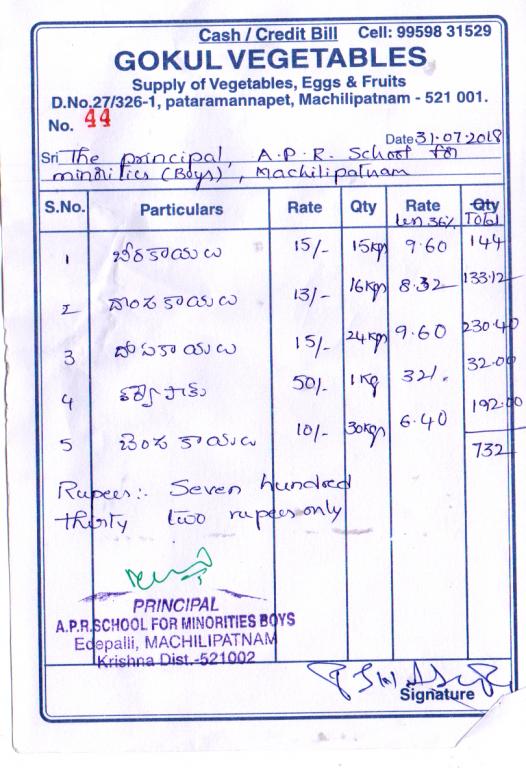 Cash / Credit Bill Cell: 99598 31529
GOKUL VEGETABLES
Supply of Vegetables, Eggs & Fruits
D.No.27/326-1, pataramannapet, Machilipatnam - 521 001.
No. 44
Date 31.07.2018
Sri The principal, A.P.R. School for
minorities (Boys), Machilipatnam
S.No. Particulars Rate Qty Rate Qty
len 36% Total
1 బీరకాయలు 15/- 15kgs 9.60 144
2 దొండకాయలు 13/- 16kgs 8.32 133.12
3 దోసకాయలు 15/- 24kgs 9.60 230.40
4 50/- 1kg 32/. 32.00
5 బెండకాయలు 10/- 30kgs 6.40 192.00
732
Rupees:- Seven hundred
thirty two rupees only
PRINCIPAL
A.P.R.SCHOOL FOR MINORITIES BOYS
Edepalli, MACHILIPATNAM
Krishna Dist.-521002
Signature